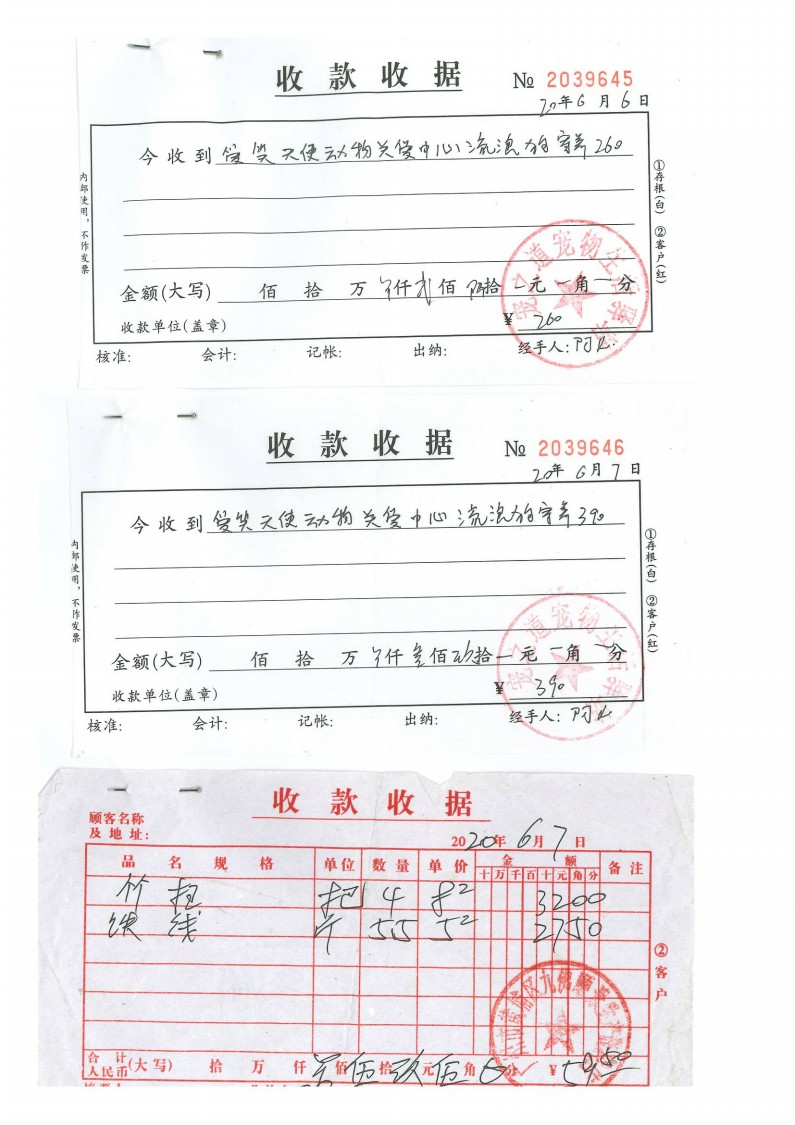 收款收据 № 2039645
20年6月6日
今收到 爱笑天使动物关爱中心流浪狗寄养260
金额(大写) 佰 拾 万 仟 贰佰 陆拾 元 角 分
¥ 260
收款单位(盖章)
核准: 会计: 记帐: 出纳: 经手人:
内部使用,不作发票
①存根(白) ②客户(红)
收款收据 № 2039646
20年6月7日
今收到 爱笑天使动物关爱中心流浪狗寄养390
金额(大写) 佰 拾 万 仟 叁佰 玖拾 元 角 分
¥ 390
收款单位(盖章)
核准: 会计: 记帐: 出纳: 经手人:
内部使用,不作发票
①存根(白) ②客户(红)
收款收据
顾客名称
及地址:
2020年6月7日
品名规格 单位 数量 单价 金额 备注
十万千百十元角分
竹 把 4 8 3200
铁线 斤 5.5 5 2750
②客户
合计
人民币(大写) 拾 万 仟 佰 伍拾 玖元 伍角 0分 ¥ 59.50